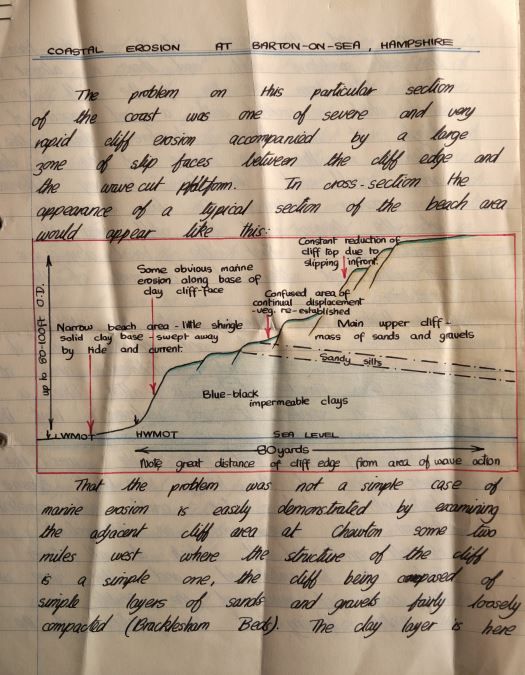 COASTAL EROSION AT BARTON-ON-SEA, HAMPSHIRE
The problem on this particular section
of the coast was one of severe and very
rapid cliff erosion accompanied by a large
zone of slip faces between the cliff edge and
the wave cut platform. In cross-section the
appearance of a typical section of the beach area
would appear like this:
Constant reduction of
cliff top due to
slipping infront.
Some obvious marine
erosion along base of
clay cliff-face
Confused area of
continual displacement
-veg. re-established
Narrow beach area - little shingle
solid clay base - swept away
by tide and current.
Main upper cliff-
mass of sands and gravels
Sandy silts
up to 80-100ft O.D.
Blue-black
impermeable clays
LWMOT
HWMOT
SEA LEVEL
80 yards
Note great distance of cliff edge from area of wave action
That the problem was not a simple case of
marine erosion is easily demonstrated by examining
the adjacent cliff area at Chewton some two
miles west where the structure of the cliff
is a simple one, the cliff being composed of
simple layers of sands and gravels fairly loosely
compacted (Bracklesham Beds). The clay layer is here